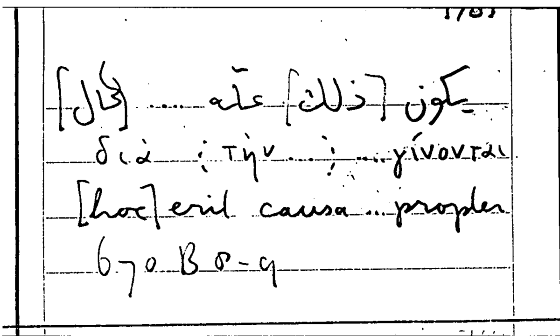 يكون [ذلك] علّه ..... [لحال]
διὰ ⋮ τὴν ... ⋮ ... γίνονται
[hoc] erit causa ... propter
670 B 8-9